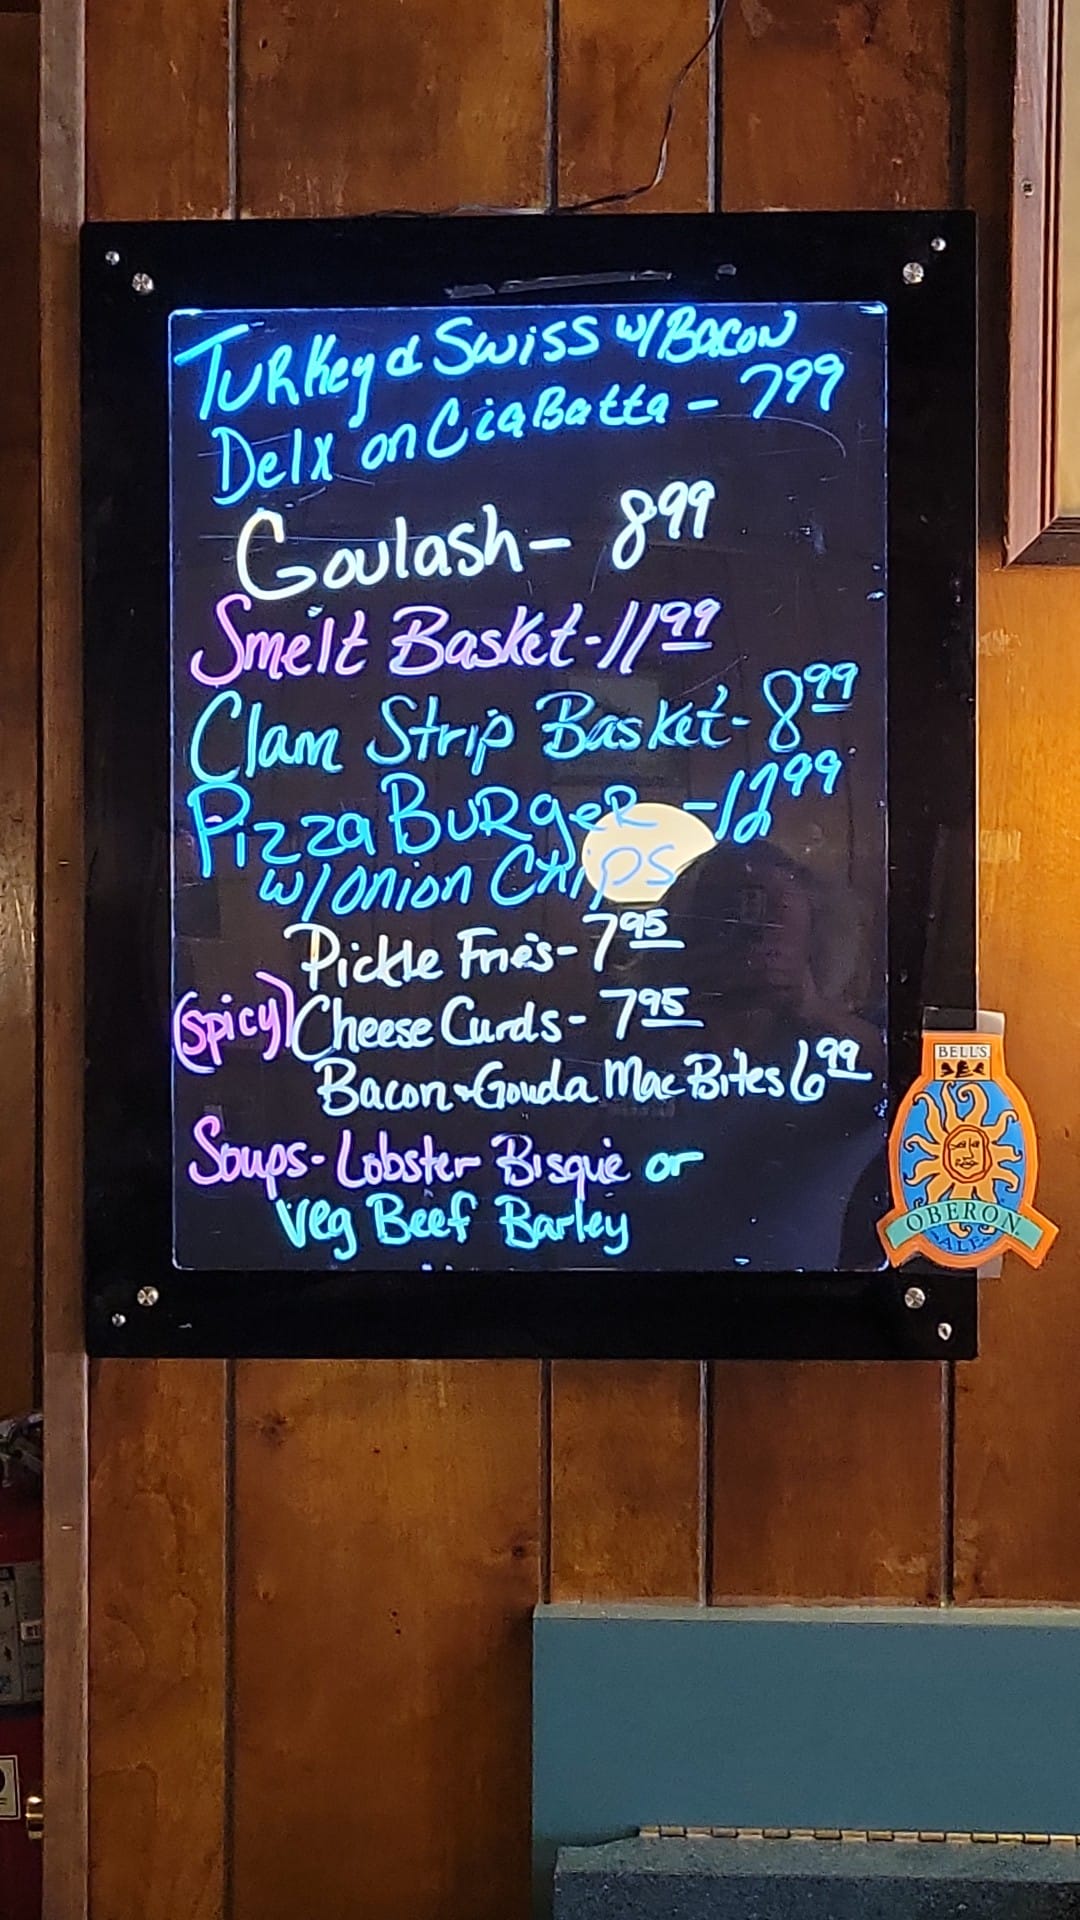 Turkey & Swiss w/Bacon
Delx on Ciabatta - 7.99
Goulash - 8 99
Smelt Basket - 11 99
Clam Strip Basket - 8 99
Pizza Burger - 12 99
w/onion Chips
Pickle Fries - 7 95
(spicy) Cheese Curds - 7 95
Bacon & Gouda Mac Bites 6 99
Soups - Lobster Bisque or
Veg Beef Barley
BELL'S
OBERON
ALE